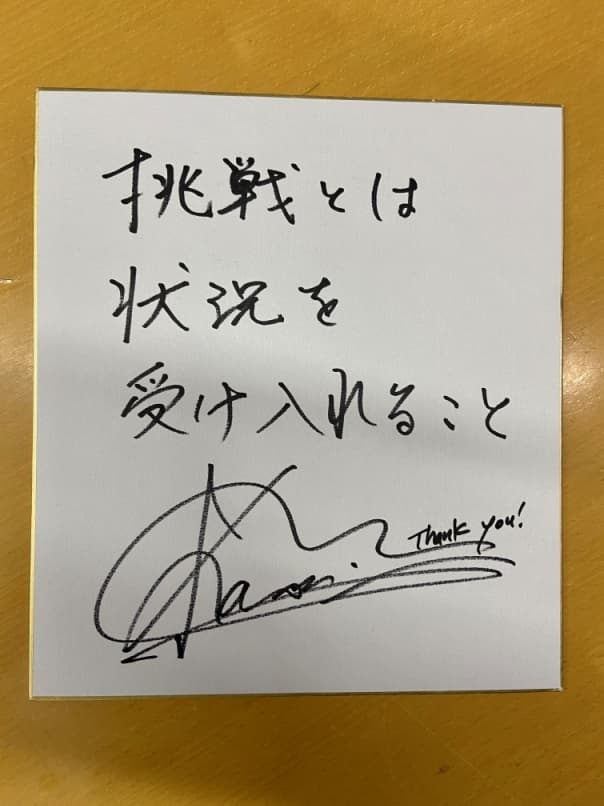 挑戦とは
状況を
受け入れること
Thank you!